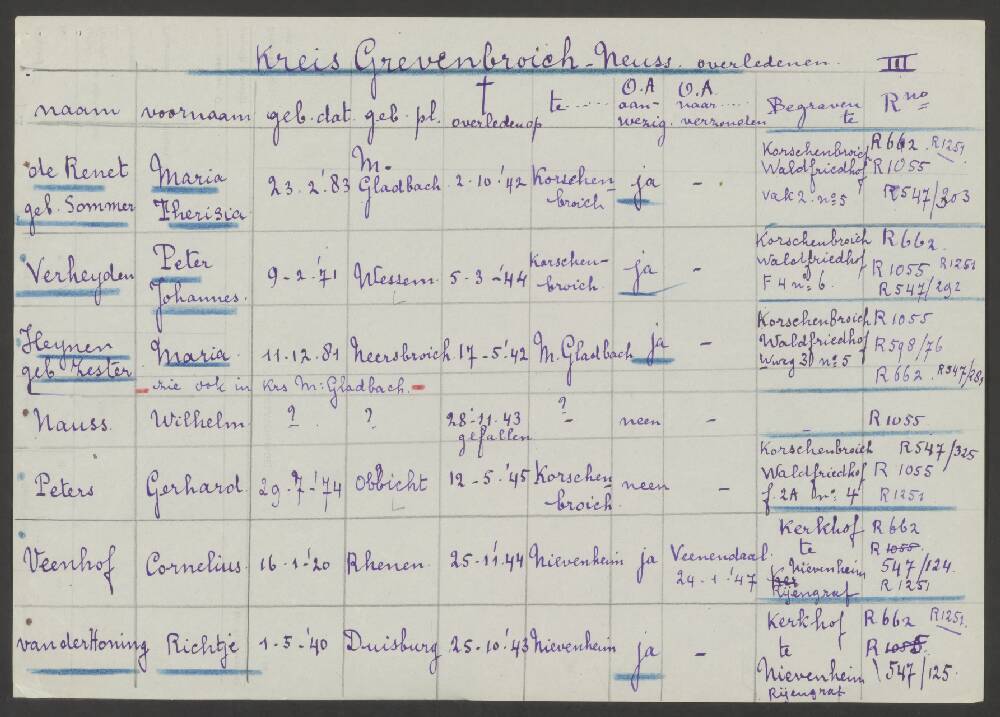 Kreis Grevenbroich-Neuss. overledenen. III
naam voornaam geb. dat. geb. pl. † overleden op te ...... O.A aanwezig. O.A. naar ..... verzonden Begraven te R no
de Renet geb. Sommer Maria Therisia 23.2.'83 M. Gladbach 2-10.'42 Korschenbroich ja - Korschenbroich Waldfriedhof vak 2. no 5 R662. R1251 R1055 R547/303
Verheyden Peter Johannes. 9-2-'71 Wessem 5-3-'44 Korschenbroich. ja - Korschenbroich Waldfriedhof F 4 no 6. R662. R1055 R1251 R547/292
Heynen geb. Zester Maria 11-12.81 Neersbroich 17-5.'42 M. Gladbach ja - Korschenbroich Waldfriedhof no 5 R1055 R598/76 R662.
- zie ook in Krs M. Gladbach. -
Nauss. Wilhelm ? ? 28-11.43 gefallen ? - neen - - R1055
Peters Gerhard. 29.7-'74 Obbicht 12-5.'45 Korschenbroich. neen - Korschenbroich Waldfriedhof f. 2A no 4 R547/325 R1055 R1251
Veenhof Cornelius. 16-1-'20 Rhenen. 25-11.'44 Nievenheim ja Veenendaal. 24.1.'47 Kerkhof te Nievenheim Rijengraf R662 R1055. 547/124. R1251
van der Honing Richtje 1-5-'40 Duisburg 25-10.'43 Nievenheim ja - Kerkhof te Nievenheim Rijengraf R662 R1251. R1055. 547/125.